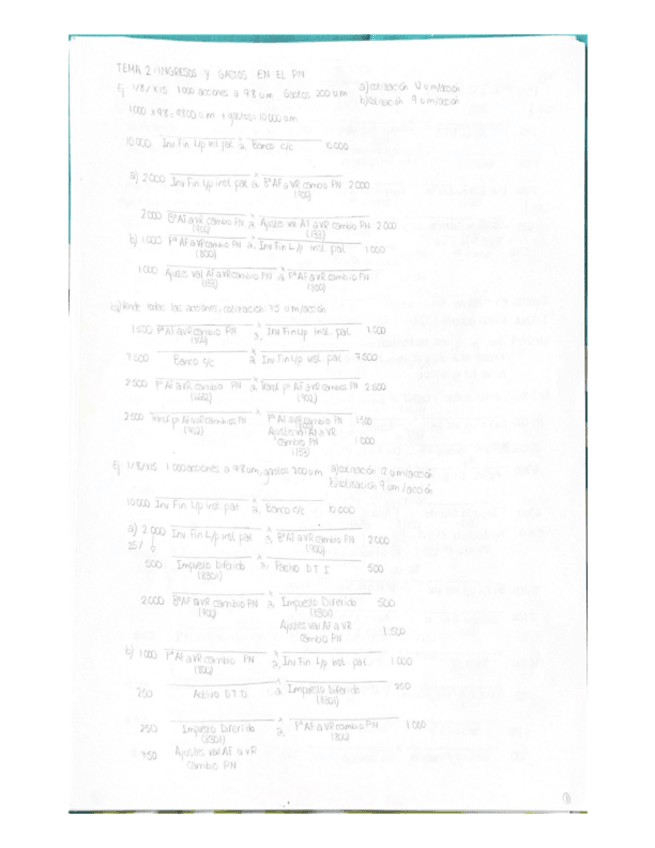 TEMA 2: INGRESOS Y GASTOS EN EL PN
Ej 1/8/X15 1000 acciones a 9'8 um Gastos 200 um a) cotización 12 um/acción
b) cotización 9 um/acción
1000 x 9'8 = 9800 um + gastos = 10000 um
10000 Inv Fin L/p inst pat a Banco c/c 10000
a) 2000 Inv Fin L/p inst pat a Bº AF a VR cambio PN 2000
(900)
2000 Bº AF a VR cambio PN a Ajustes val AF a VR cambio PN 2000
(900) (133)
b) 1000 Pª AF a VR cambio PN a Inv Fin L/p inst pat 1000
(800)
1000 Ajustes val AF a VR cambio PN a Pª AF a VR cambio PN
(133) (800)
Vende todas las acciones, cotización 7'5 um/acción
1500 Pª AF a VR cambio PN a Inv Fin L/p inst pat 1500
7500 Banco c/c a Inv Fin L/p inst pat 7500
2500 Pª AF a VR cambio PN a Transf pª AF a VR cambio PN 2500
(902)
2500 Transf pª AF a VR cambio PN Pª AF a VR cambio PN 1500
(902) Ajustes val AF a VR
cambio PN 1000
(133)
Ej 1/8/X15 1000 acciones a 9'8 um, gastos 200 um a) cotización 12 um/acción
b) cotización 9 um/acción
10000 Inv Fin L/p inst pat a Banco c/c 10000
a) 2000 Inv Fin L/p inst pat a Bº AF a VR cambio PN 2000
25% (900)
500 Impuesto Diferido a Pasivo D T I 500
(8301)
2000 Bº AF a VR cambio PN a Impuesto Diferido 500
(900) (8301)
Ajustes val AF a VR 1500
cambio PN
b) 1000 Pª AF a VR cambio PN a Inv Fin L/p inst pat 1000
(800)
250 Activo D T D a Impuesto Diferido 250
(8301)
250 Impuesto Diferido a Pª AF a VR cambio PN 1000
(8301) (800)
750 Ajustes val AF a VR
cambio PN